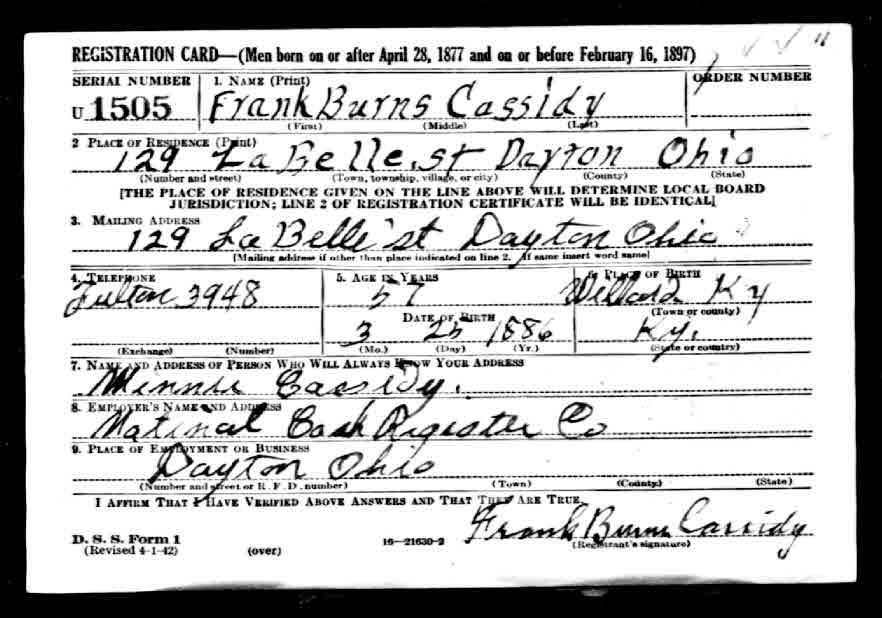 REGISTRATION CARD—(Men born on or after April 28, 1877 and on or before February 16, 1897)
SERIAL NUMBER 1. NAME (Print) ORDER NUMBER
U 1505 Frank Burns Cassidy
(First) (Middle) (Last)
2 PLACE OF RESIDENCE (Print)
129 La Belle. st Dayton Ohio
(Number and street) (Town, township, village, or city) (County) (State)
[THE PLACE OF RESIDENCE GIVEN ON THE LINE ABOVE WILL DETERMINE LOCAL BOARD
JURISDICTION; LINE 2 OF REGISTRATION CERTIFICATE WILL BE IDENTICAL]
3. MAILING ADDRESS
129 La Belle st Dayton Ohio
[Mailing address if other than place indicated on line 2. If same insert word same]
4. TELEPHONE 5. AGE IN YEARS 6. PLACE OF BIRTH
Fulton 3948 57 Willard Ky
(Town or county)
DATE OF BIRTH
3 25 1886 Ky.
(Exchange) (Number) (Mo.) (Day) (Yr.) (State or country)
7. NAME AND ADDRESS OF PERSON WHO WILL ALWAYS KNOW YOUR ADDRESS
Minnie Cassidy.
8. EMPLOYER'S NAME AND ADDRESS
National Cash Register Co
9. PLACE OF EMPLOYMENT OR BUSINESS
Dayton Ohio
(Number and street or R. F. D. number) (Town) (County) (State)
I AFFIRM THAT I HAVE VERIFIED ABOVE ANSWERS AND THAT THEY ARE TRUE.
Frank Burns Cassidy
D. S. S. Form 1 16—21630-2 (Registrant's signature)
(Revised 4-1-42) (over)